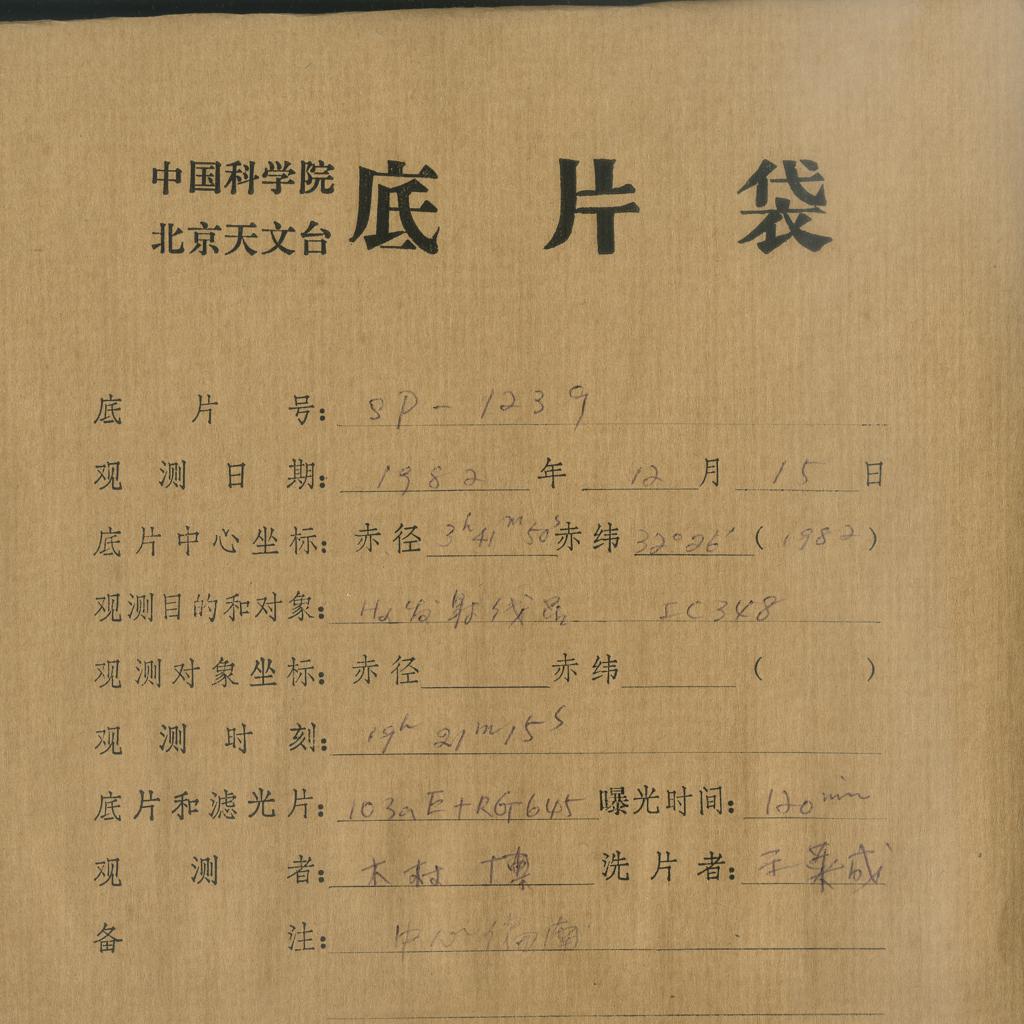 中国科学院
北京天文台
底片袋
底片号: SP-1239
观测日期: 1982年12月15日
底片中心坐标: 赤径 3h41m50s 赤纬 32°26′ (1982)
观测目的和对象: Hα发射线星 IC348
观测对象坐标: 赤径 赤纬 ( )
观测时刻: 19h 21m 15s
底片和滤光片: 103aE+RG645 曝光时间: 120min
观测者: 木村 博 洗片者: 王
备注: 中心偏南